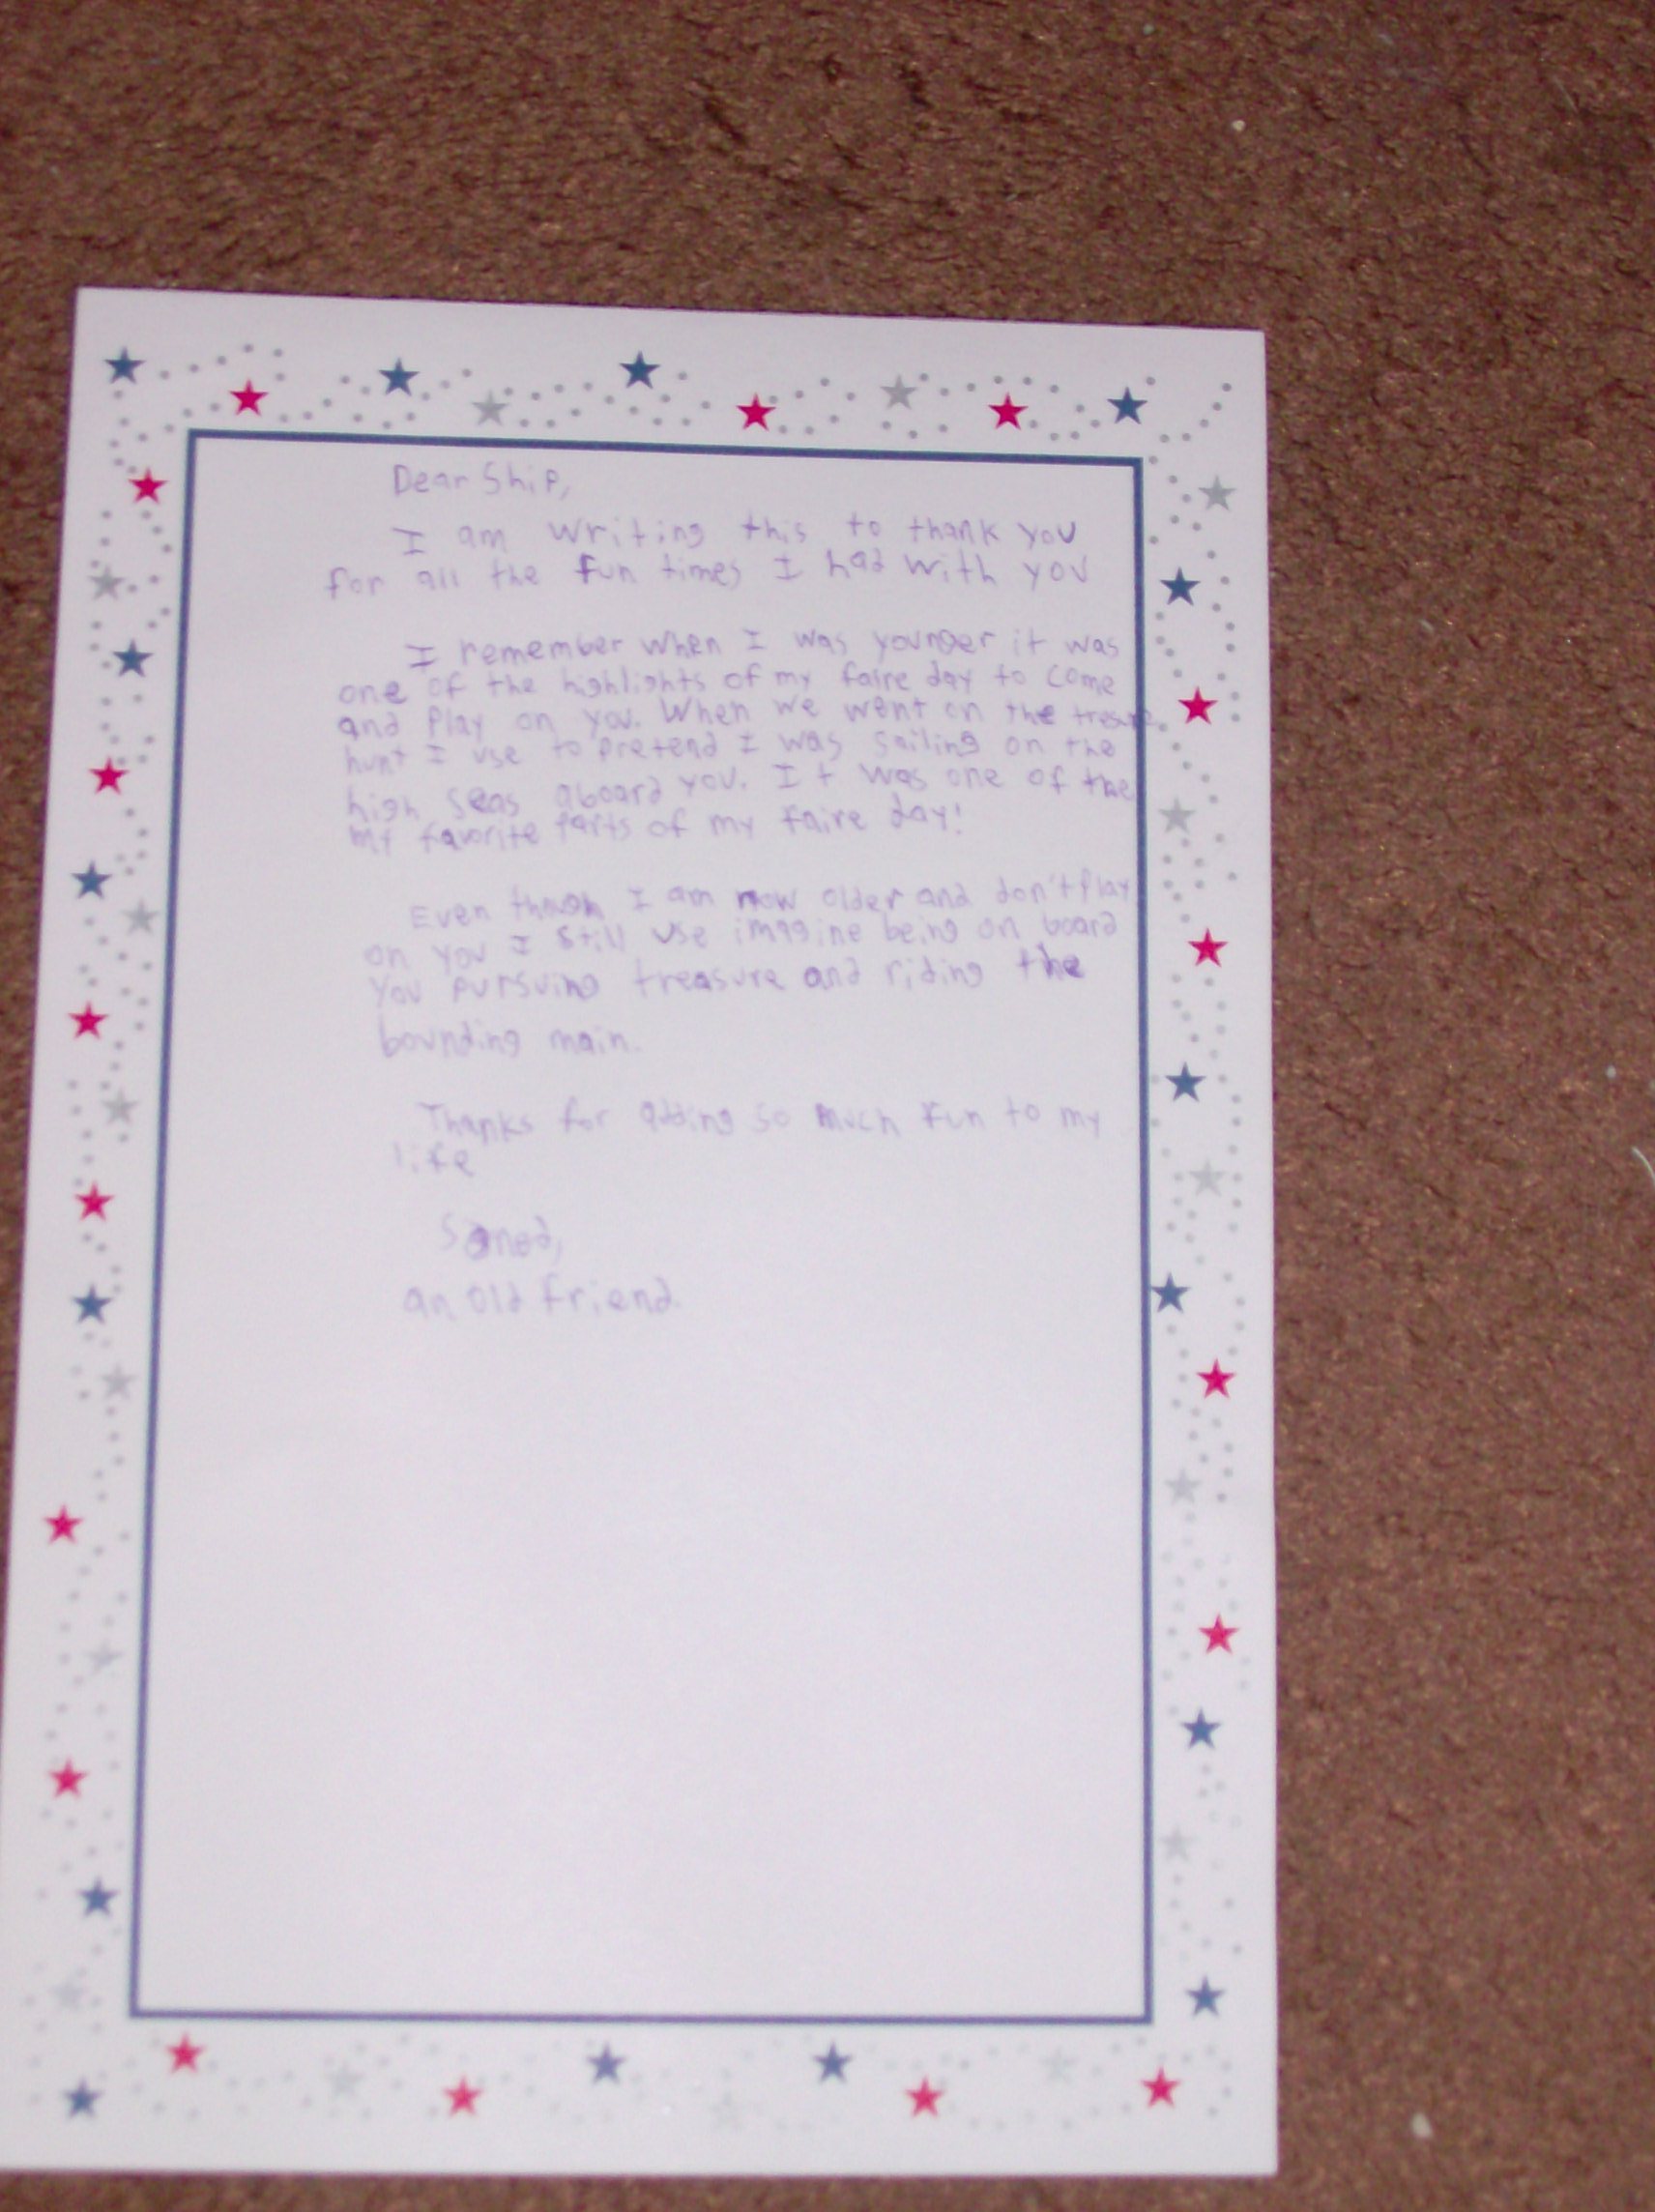 Dear Ship,
I am writing this to thank you
for all the fun times I had with you
I remember when I was younger it was
one of the highlights of my faire day to come
and play on you. When we went on the tresure
hunt I use to pretend I was sailing on the
high seas aboard you. It was one of the
my favorite parts of my faire day!
Even though I am now older and don't play
on you I still use imagine being on board
you pursuing treasure and riding the
bounding main.
Thanks for adding so much fun to my
life
Signed,
an old friend.